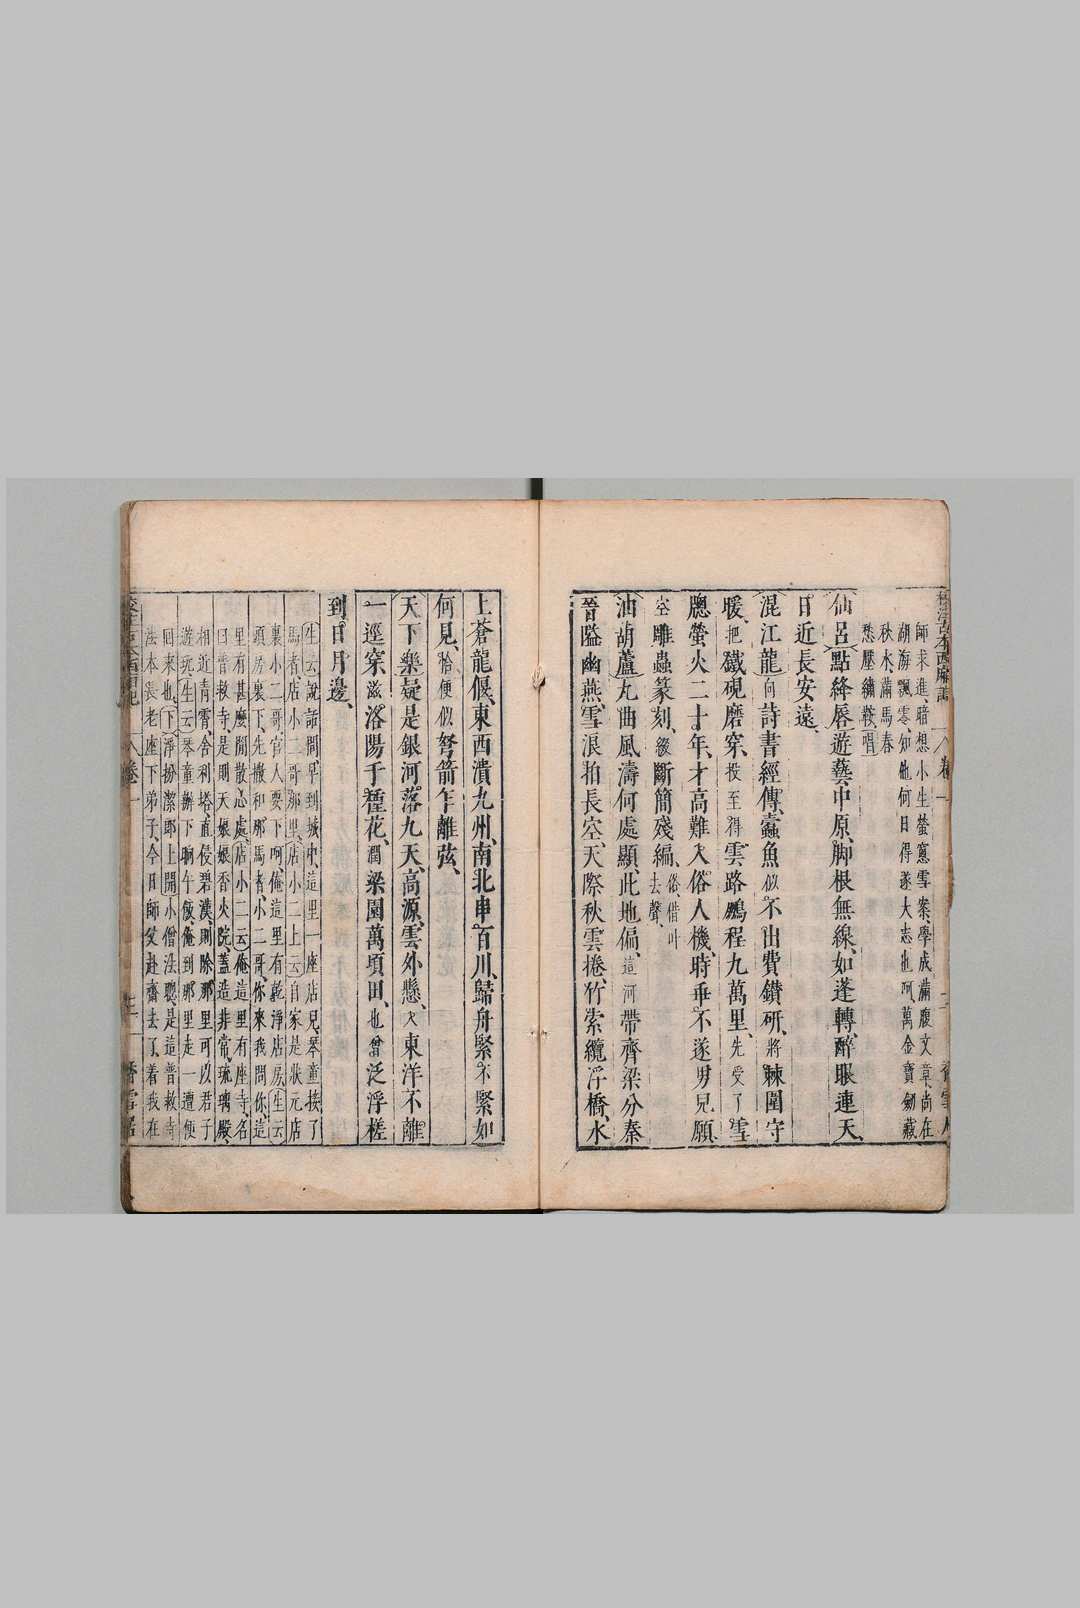 師求進、暗想小生螢窻雪案、學成滿腹文章、尚在
湖海飄零、知他何日得遂大志也呵、萬金寶劒藏
秋水、滿馬春
愁壓繡鞍、唱
仙呂點絳唇遊藝中原、脚根無線、如蓬轉、醉眼連天、
日近長安遠、
混江龍向詩書經傳、蠹魚似不出費鑽研、將棘圍守
暖、把鐵硯磨穿、投至得雲路鵬程九萬里、先受了雪
牕螢火二十年、才高難入俗人機、時乖不遂男兒願、
空雕蟲篆刻、綴斷簡殘編、俗借叶去聲、
油葫蘆九曲風濤何處顯、此地偏、這河帶齊梁分秦
晉隘幽燕、雪浪拍長空、天際秋雲捲、竹索纜浮橋、水
上蒼龍偃、東西潰九州、南北串百川、歸舟緊不緊如
何見、恰便似弩箭乍離弦、
天下樂疑是銀河落九天、高源雲外懸、入東洋不離
一逕穿、滋洛陽千種花、潤梁園萬頃田、也曾泛浮槎
到日月邊、
生云說話間早到城中、這里一座店兒、琴童接了
馬者、店小二哥那里店小二上云自家是狀元店
裏小二哥、官人要下呵、俺這里有乾淨店房、生云
頭房裏下、先撒和那馬者、小二哥、你來我問你、這
里有甚麼閒散心處、店小二云俺這里有座寺、名
曰普救寺、是則天娘娘香火院、蓋造非常、琉璃殿、
相近青霄、舍利塔、直侵碧漢、則除那里可以君子
遊玩、生云琴童辦下晌午飯、俺到那里走一遭便
回來也、下淨扮潔郎上開小僧法聰、是這普救寺
法本長老座下弟子、今日師父赴齋去了、着我在
卷一